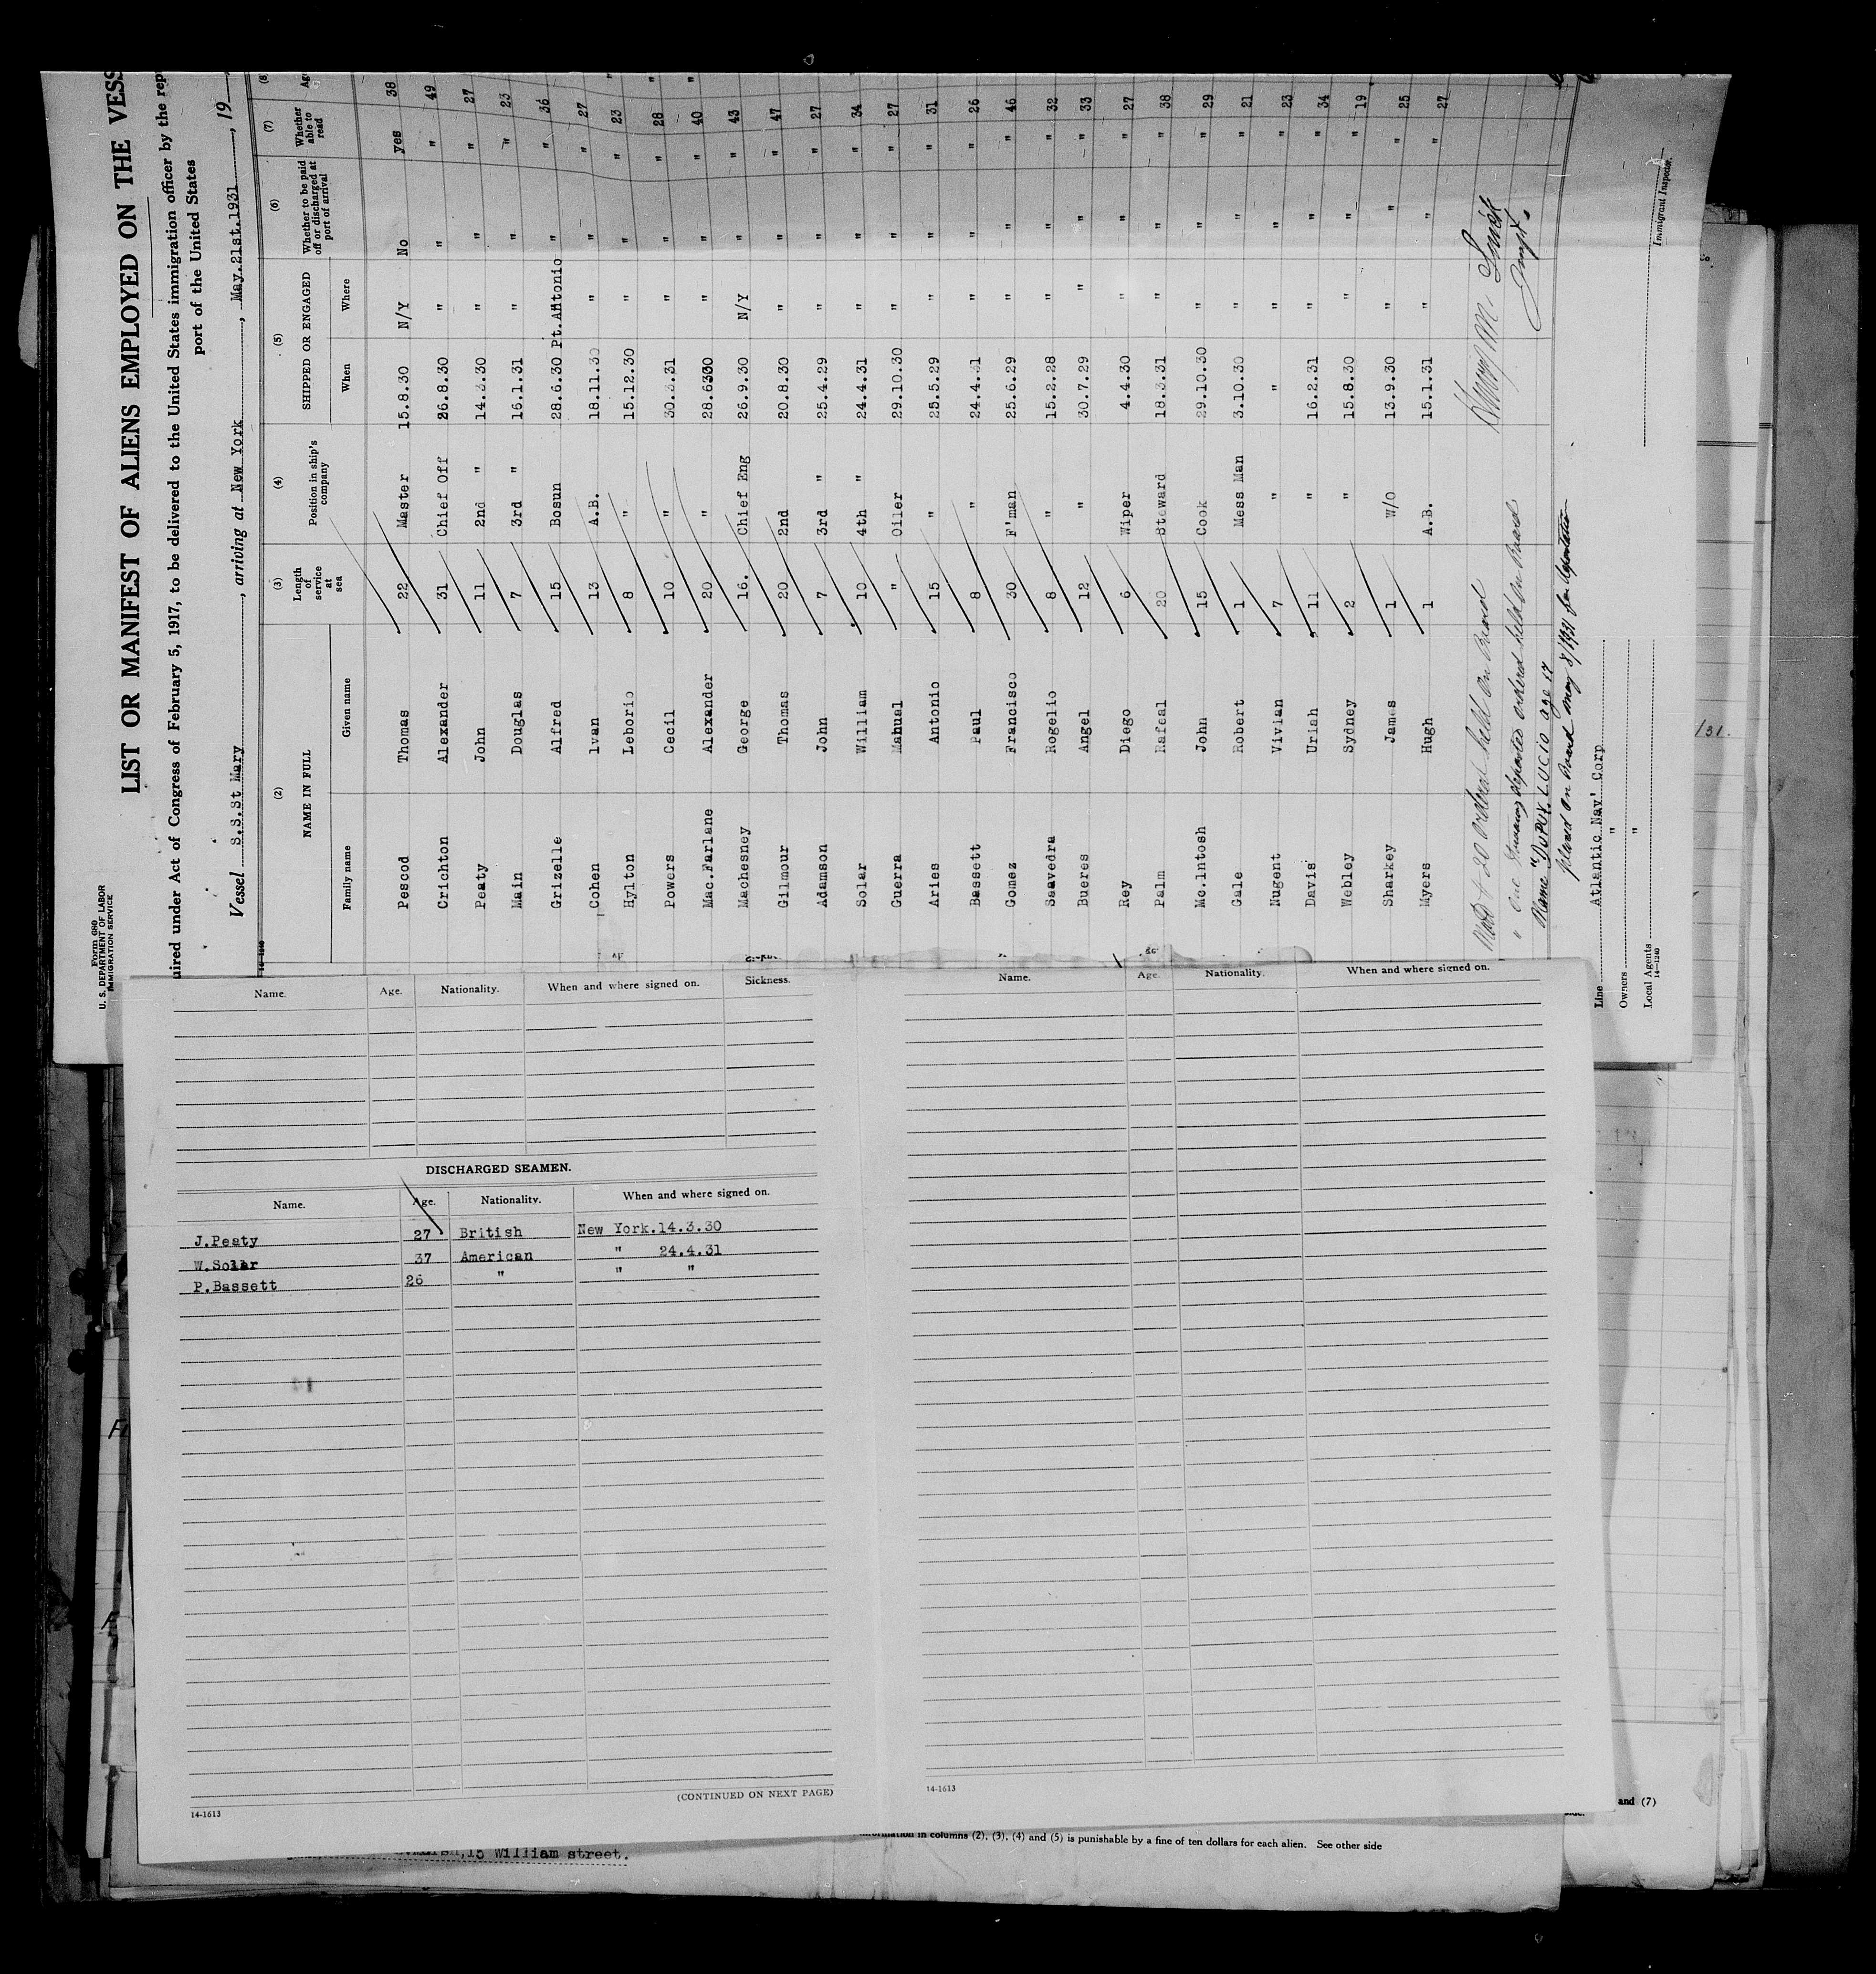 Form 680
U. S. DEPARTMENT OF LABOR
IMMIGRATION SERVICE
LIST OR MANIFEST OF ALIENS EMPLOYED ON THE VESS
uired under Act of Congress of February 5, 1917, to be delivered to the United States immigration officer by the rep
port of the United States
Vessel S.S.St Mary, arriving at New York, May.21st.1931, 19
14-1240
(2) (3) (4) (5) (6) (7) (8)
NAME IN FULL Length of service at sea Position in ship's company SHIPPED OR ENGAGED Whether to be paid off or discharged at port of arrival Whether able to read Ag
Family name Given name When Where
Pescod Thomas 22 Master 15.8.30 N/Y No yes 38
Crichton Alexander 31 Chief Off 26.8.30 " " " 49
Peaty John 11 2nd " 14.3.30 " " " 27
Main Douglas 7 3rd " 16.1.31 " " " 23
Grizelle Alfred 15 Bosun 28.6.30 Pt.Antonio " " 36
Cohen Ivan 13 A.B. 18.11.30 " " " 27
Hylton Leborio 8 " 15.12.30 " " " 23
Powers Cecil 10 " 30.3.31 " " " 28
Mac.Farlane Alexander 20 " 28.6.30 " " " 40
Machesney George 16. Chief Eng 26.9.30 N/Y " " 43
Gilmour Thomas 20 2nd 20.8.30 " " " 47
Adamson John 7 3rd " 25.4.29 " " " 27
Solar William 10 4th " 24.4.31 " " " 34
Guerra Manual " Oiler 29.10.30 " " " 27
Aries Antonio 15 " 25.5.29 " " " 31
Bassett Paul 8 " 24.4.31 " " " 26
Gomez Francisco 30 F'man 25.6.29 " " " 46
Saavedra Rogelio 8 " 15.2.28 " " " 32
Bueres Angel 12 " 30.7.29 " " " 33
Rey Diego 6 Wiper 4.4.30 " " " 27
Palm Rafeal 20 Steward 18.3.31 " " " 38
Mc.Intosh John 15 Cook 29.10.30 " " " 29
Gale Robert 1 Mess Man 3.10.30 " " " 21
Nugent Vivian 7 " " " " " 23
Davis Uriah 11 " 16.2.31 " " " 34
Webley Sydney 2 " 15.8.30 " " " 19
Sharkey James 1 W/O 13.9.30 " " " 25
Myers Hugh 1 A.B. 15.1.31 " " " 27
20 ordered held on board
" One deported ordered held on board
Name "Dupuy, LUCIO age 17
placed on board may 8/1931 for deportation
Line Atlantic Nav' Corp
Owners "
Local Agents "
14-1240
Immigrant Inspector.
Name. Age. Nationality. When and where signed on. Sickness.
DISCHARGED SEAMEN.
Name. Age. Nationality. When and where signed on.
J.Peaty 27 British New York.14.3.30
W.Solar 37 American " 24.4.31
P.Bassett 26 " " "
(CONTINUED ON NEXT PAGE)
14-1613
Name. Age. Nationality. When and where signed on.
14-1613
/31.
and (7)
information in columns (2), (3), (4) and (5) is punishable by a fine of ten dollars for each alien. See other side
,15 William street.